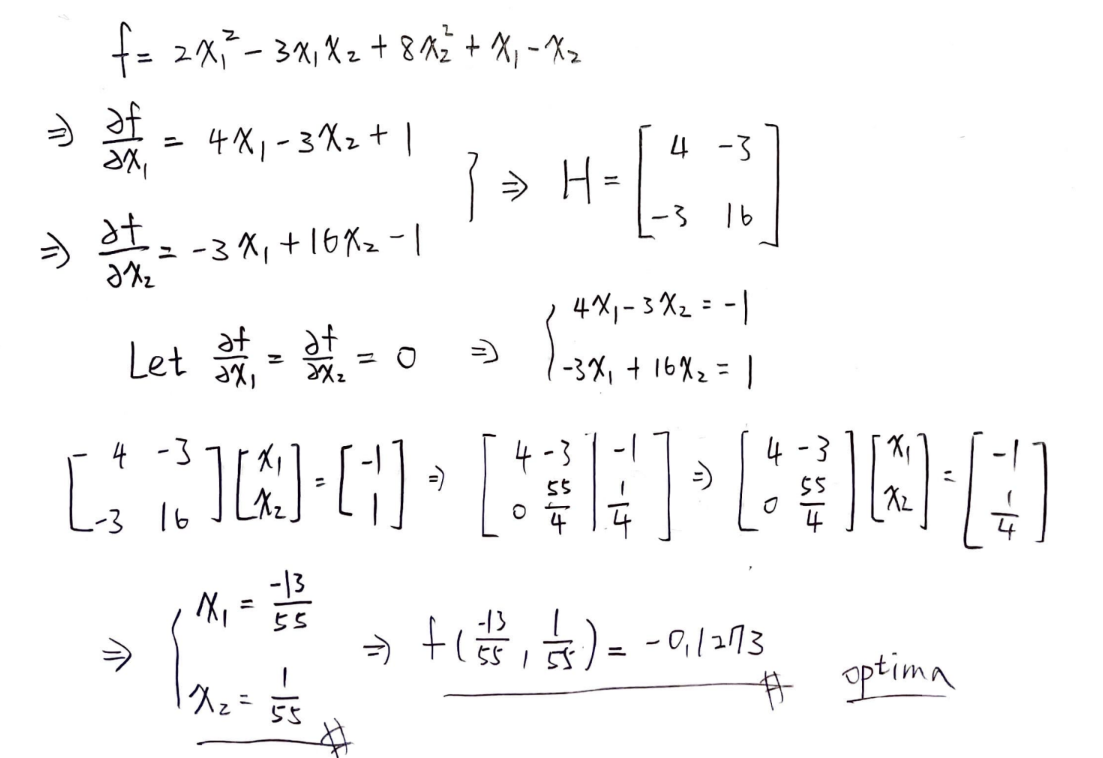 f = 2x₁² - 3x₁x₂ + 8x₂² + x₁ - x₂
⇒ ∂f/∂x₁ = 4x₁ - 3x₂ + 1
} ⇒ H = [4 -3; -3 16]
⇒ ∂f/∂x₂ = -3x₁ + 16x₂ - 1
Let ∂f/∂x₁ = ∂f/∂x₂ = 0 ⇒ { 4x₁ - 3x₂ = -1
-3x₁ + 16x₂ = 1
[4 -3; -3 16][x₁; x₂] = [-1; 1] ⇒ [4 -3 | -1; 0 55/4 | 1/4] ⇒ [4 -3; 0 55/4][x₁; x₂] = [-1; 1/4]
⇒ { x₁ = -13/55
x₂ = 1/55 #
⇒ f(-13/55, 1/55) = -0.1273 #
optima